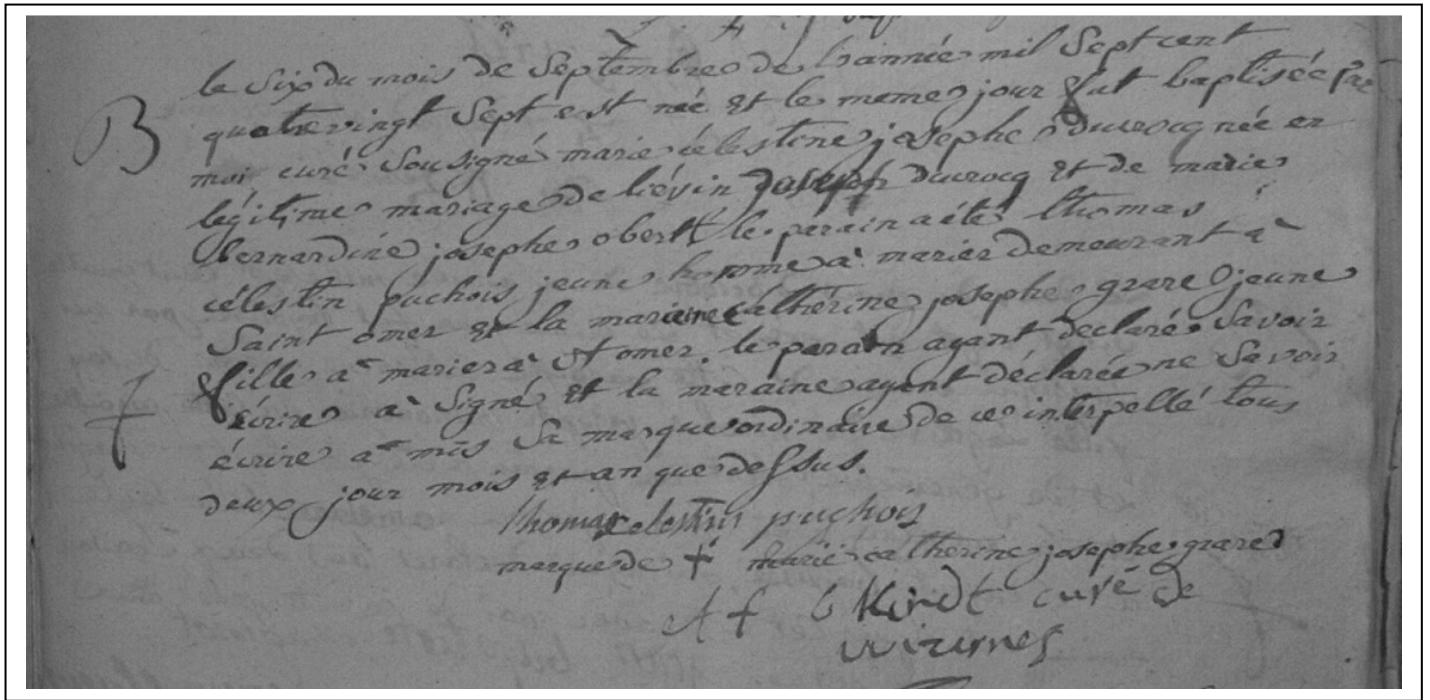 B
le six du mois de Septembre de l'année mil Sept cent
quatrevingt Sept est née et le meme jour fut baptisée par
moi curé Sousigné marie célestine josephe ducrocq née en
légitime mariage de liévin Joseph ducrocq et de marie
bernardine josephe obert le parain a été thomas
célestin puchois jeune homme a marier demeurant a
Saint omer et la maraine catherine josephe grare jeune
fille a marier a St omer. le parain ayant declaré Savoir
écrire a Signé et la maraine ayant déclarée ne Savoir
écrire a mis Sa marque ordinaire de ce interpellé tous
deux jour mois et an que dessus.
thomas celestin puchois
marque de + marie catherine josephe grare
curé de
wirumes